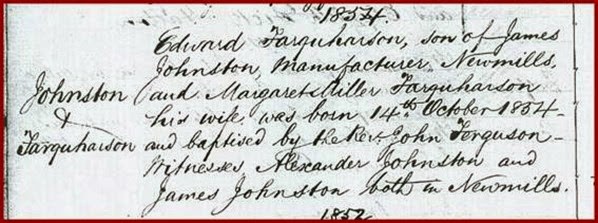 1854.
Edward Farquharson, son of James
Johnston, Manufacturer, Newmills,
Johnston and Margaret Miller Farquharson
& his wife, was born 14th October 1854
Farquharson and baptised by the Revd. John Ferguson
Witnesses Alexander Johnston and
James Johnston both in Newmills.
1852